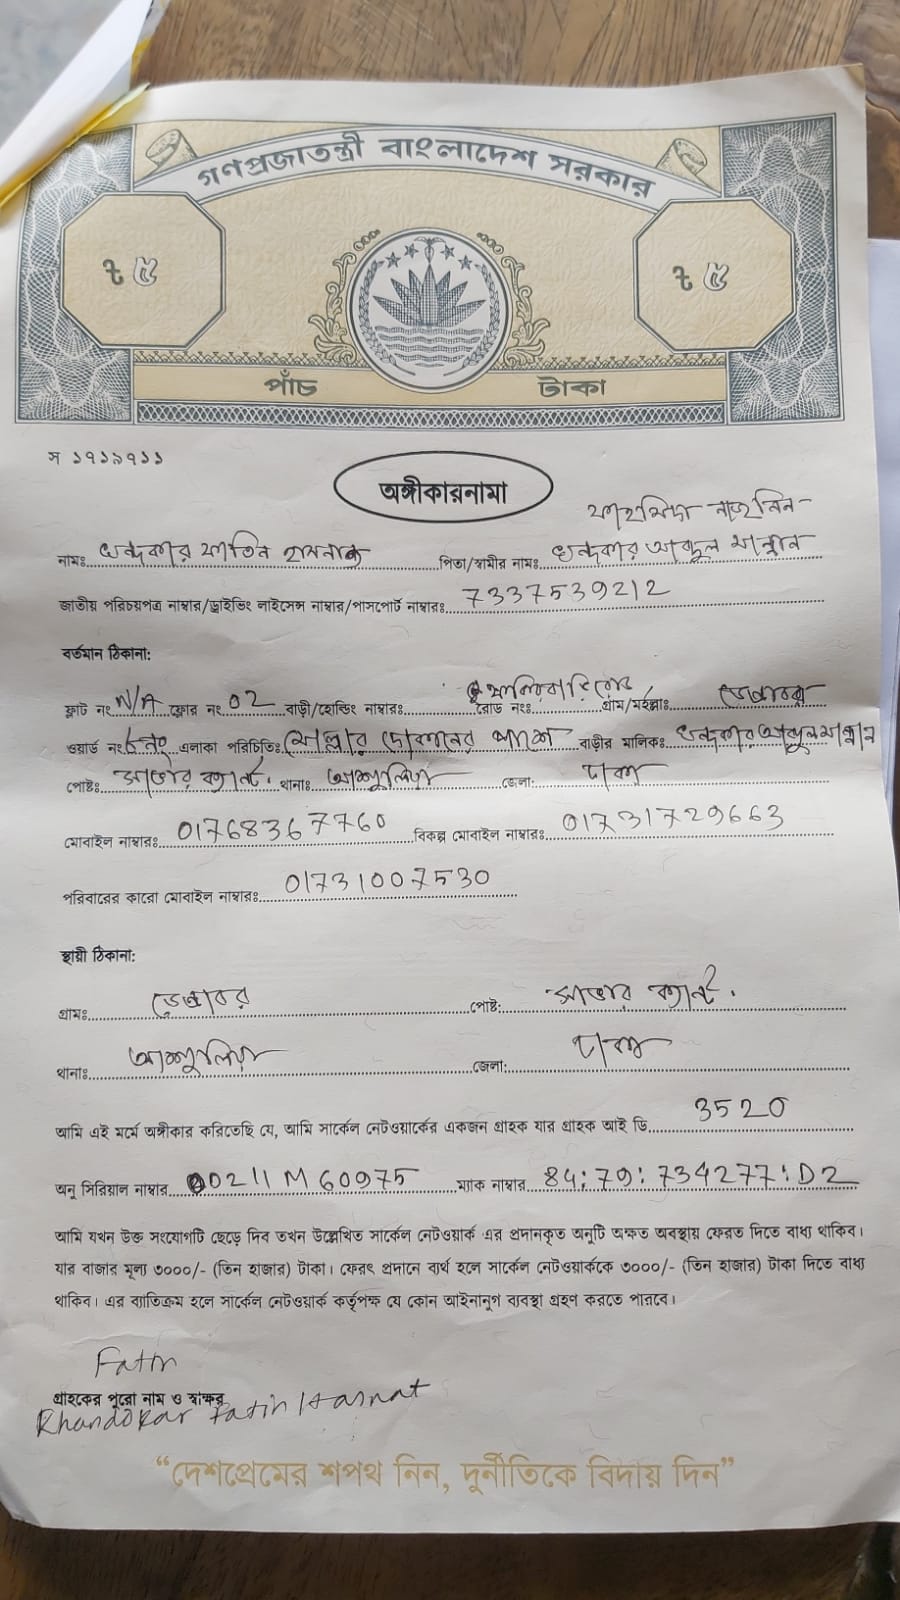 গণপ্রজাতন্ত্রী বাংলাদেশ সরকার
৳ ৫
৳ ৫
পাঁচ টাকা
স ১৭১৯৭১১
অঙ্গীকারনামা
ফাহমিদা নাজনিন
নামঃ খন্দকার ফাতিন হাসনাত পিতা/স্বামীর নামঃ খন্দকার আব্দুল মান্নান
জাতীয় পরিচয়পত্র নাম্বার/ড্রাইভিং লাইসেন্স নাম্বার/পাসপোর্ট নাম্বারঃ 7337539212
বর্তমান ঠিকানা:
ফ্লাট নং N/A ফ্লোর নং 02 বাড়ী/হোল্ডিং নাম্বারঃ রোড নং পলিবাড়িরোড গ্রাম/মহল্লাঃ ডেন্ডাবর
ওয়ার্ড নং ৮নং এলাকা পরিচিতি: মোল্লার দোকানের পাশে বাড়ীর মালিক: খন্দকার আব্দুল মান্নান
পোষ্টঃ সাভার ক্যান্ট. থানাঃ আশুলিয়া জেলা: ঢাকা
মোবাইল নাম্বারঃ 01768367760 বিকল্প মোবাইল নাম্বারঃ 01731729663
পরিবারের কারো মোবাইল নাম্বারঃ 01731007530
স্থায়ী ঠিকানা:
গ্রামঃ ডেন্ডাবর পোষ্ট: সাভার ক্যান্ট.
থানাঃ আশুলিয়া জেলা: ঢাকা
আমি এই মর্মে অঙ্গীকার করিতেছি যে, আমি সার্কেল নেটওয়ার্কের একজন গ্রাহক যার গ্রাহক আই ডি 3520
অনু সিরিয়াল নাম্বার 00211M60975 ম্যাক নাম্বার 84:79:734277:D2
আমি যখন উক্ত সংযোগটি ছেড়ে দিব তখন উল্লেখিত সার্কেল নেটওয়ার্ক এর প্রদানকৃত অনুটি অক্ষত অবস্থায় ফেরত দিতে বাধ্য থাকিব।
যার বাজার মূল্য ৩০০০/- (তিন হাজার) টাকা। ফেরৎ প্রদানে ব্যর্থ হলে সার্কেল নেটওয়ার্ককে ৩০০০/- (তিন হাজার) টাকা দিতে বাধ্য
থাকিব। এর ব্যতিক্রম হলে সার্কেল নেটওয়ার্ক কর্তৃপক্ষ যে কোন আইনানুগ ব্যবস্থা গ্রহণ করতে পারবে।
Fatin
গ্রাহকের পুরো নাম ও স্বাক্ষর
Khandokar Fatin Hasnat
“দেশপ্রেমের শপথ নিন, দুর্নীতিকে বিদায় দিন”